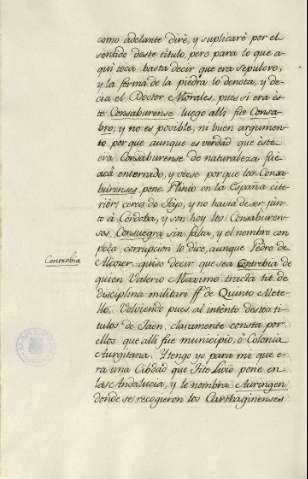 como adelante diré, y suplicaré por el
sentido deste titulo pero para lo que a-
qui toca basta decir que era sepulcro,
y la forma de la piedra lo denota, y de-
cia el Doctor Morales, pues si era es-
te Consaburense luego alli fue Consa-
bro, y no es posible, ni buen argumen-
to porque aunque es verdad que este
era Consaburense de naturaleza, fue
acá enterrado, y vèese por que los Consa-
burenses, pone Plinio en la España cite-
riór, cerca de Tajo, y no havia de ser jun-
to à Córdoba, y son hoy los Consaburen-
ses, Consuegra sin falta, y el nombre con
poca, corrupcion lo dice, aunque Pedro de
Alcocer quiso decir que sea Contrebia de
Contrebia
quien Valerio Maximo tracta tit. de
disciplina militari ff. de Quinto Mete-
llo. Volviendo pues al intento destos ti-
tulos de Jaen, claramente consta por
ellos que alli fue municipio, ò Colonia
Aurgitana. Y tengo yo para mi que e-
ra una Cibdad que Tito Livio pone en
las Andalucia, y le nombra Auringen
donde se recogieron los Carthaginenses